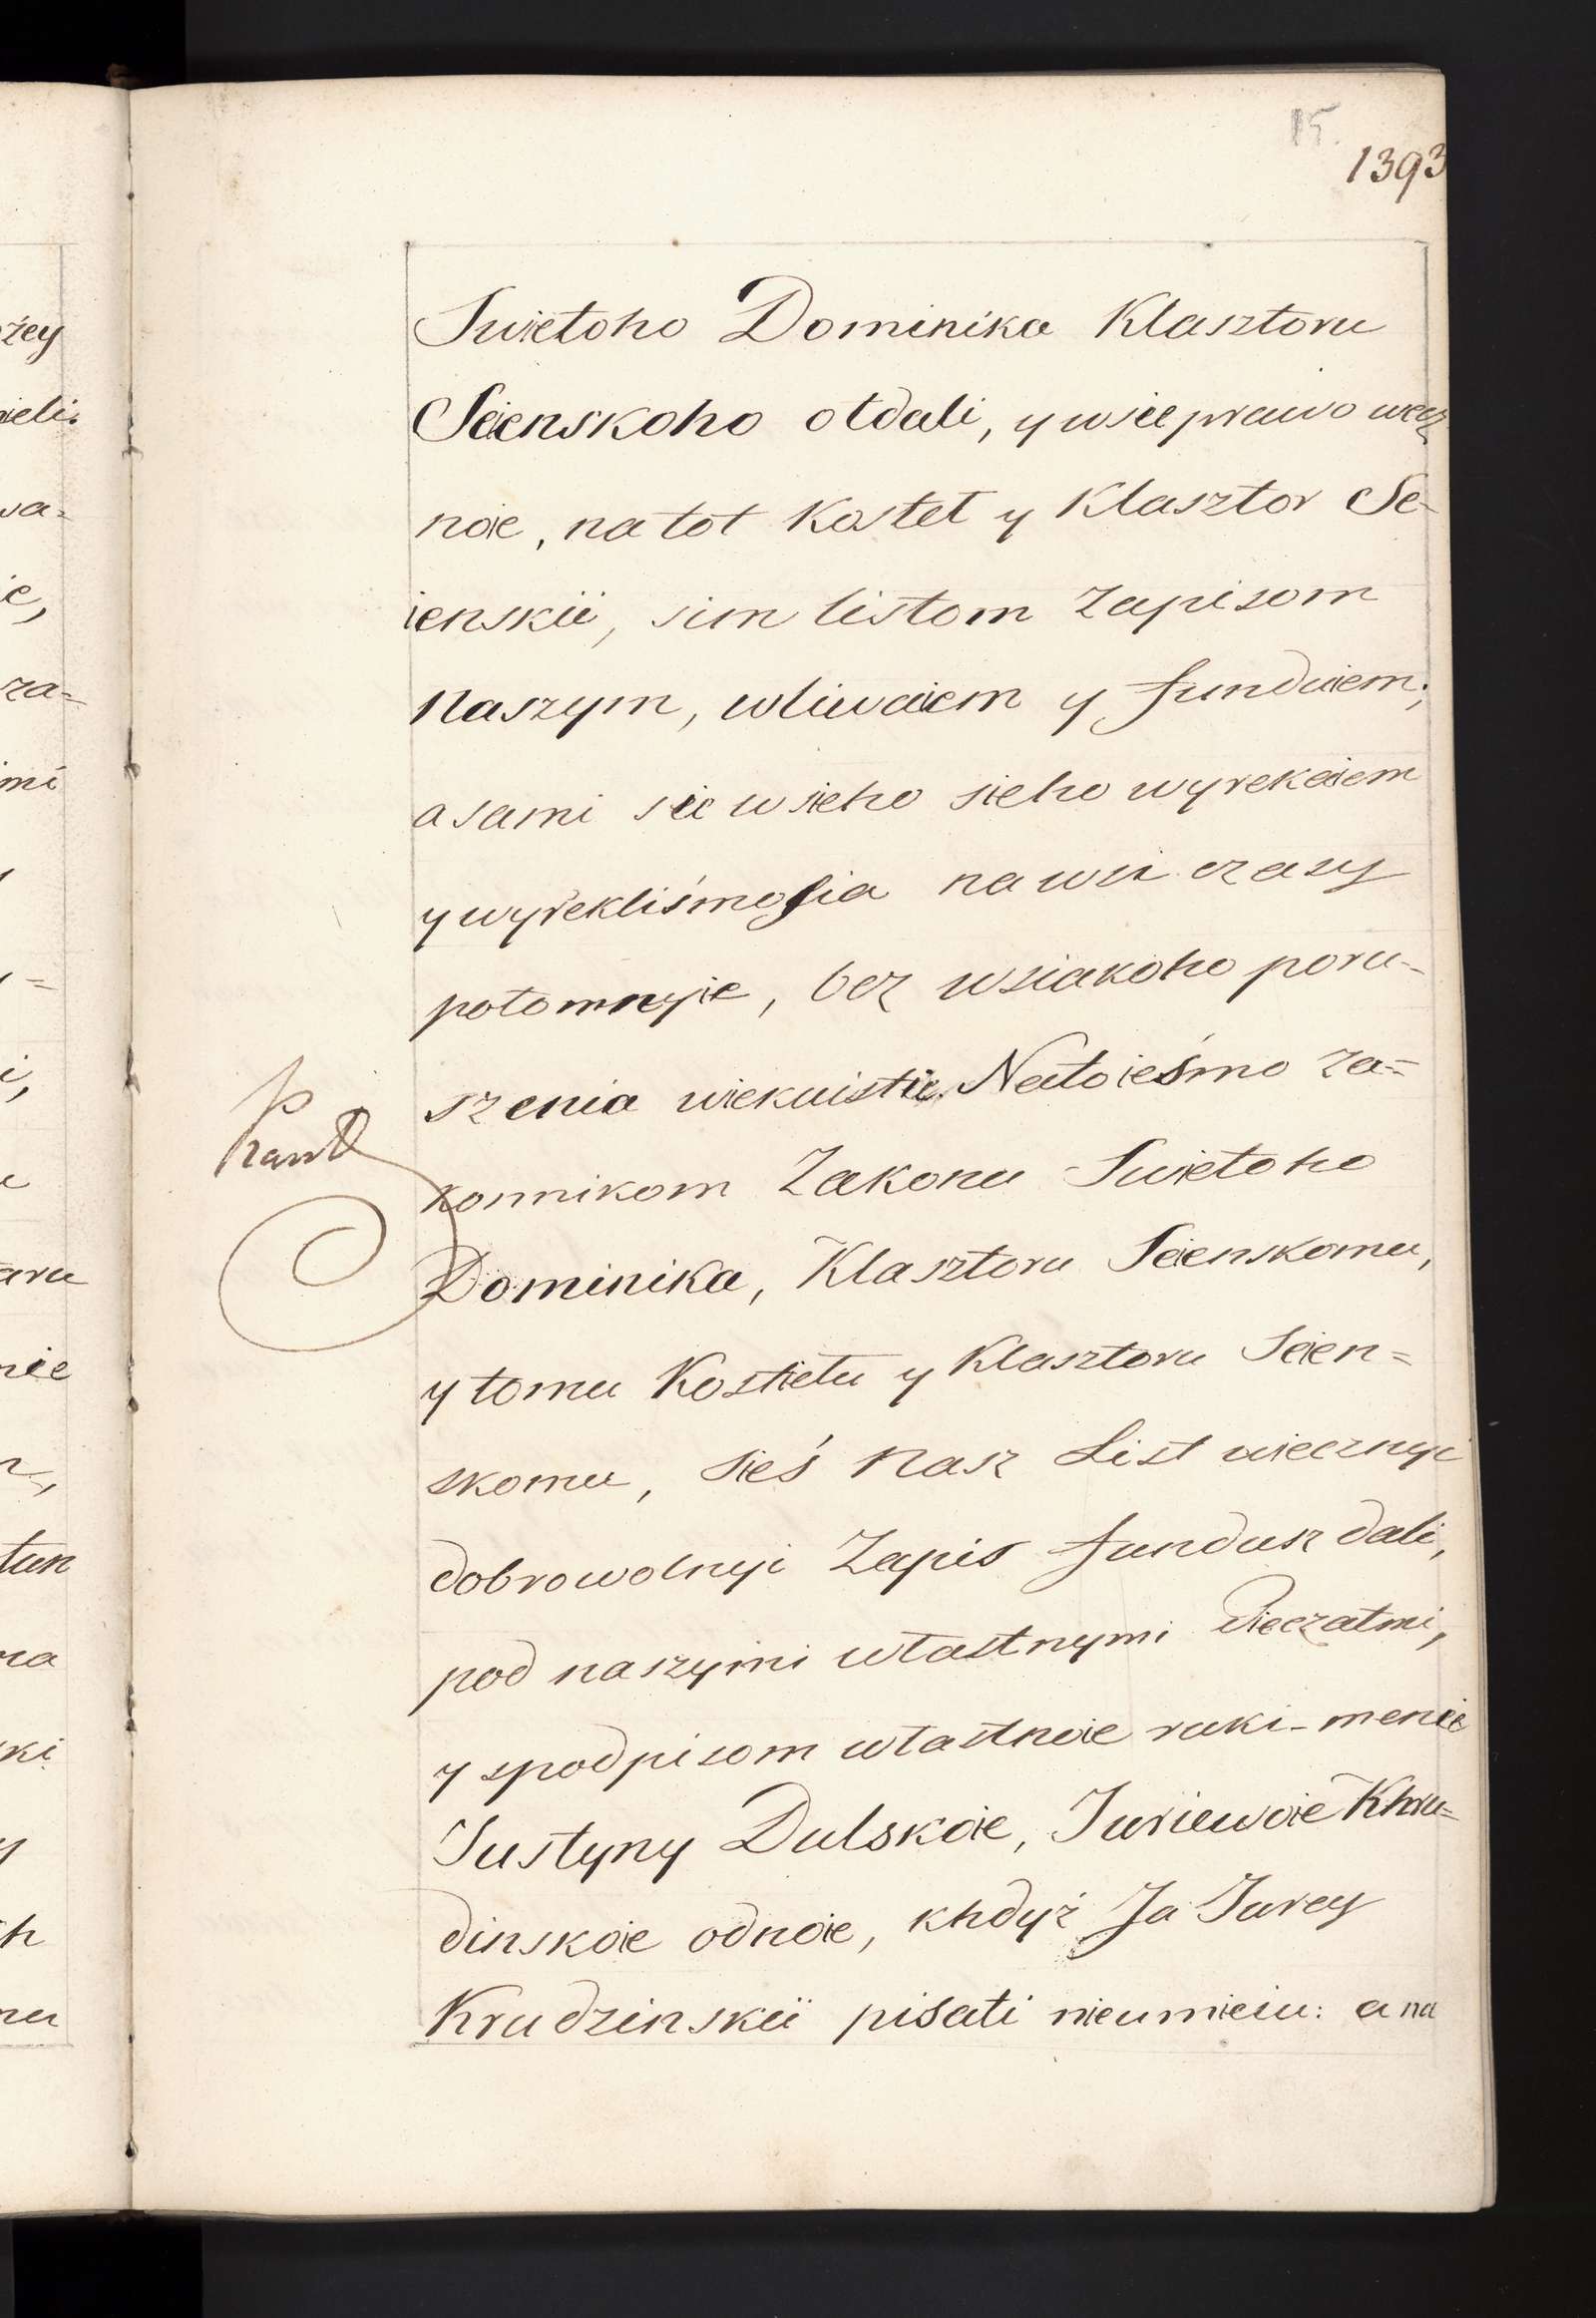 15.
1393
Swietoho Dominika Klasztoru
Seienskoho otdali, y wsie prawo wecz
noie, na tot Kosteł y Klasztor Se-
ienskii, sim listom zapisom
naszym, wliwaiem y funduiem;
a sami sie wsieho sieho wyrekaiem
y wyrekliśmosia na wsi czasy
potomnyie, bez wsiakoho poru-
szenia wiekuistie. Na to ieśmo za=
konnikom Zakonu Swietoho
Dominika, Klasztoru Seienskomu,
y tomu Kostiełu y Klasztoru Seien=
skomu, sieś nasz List wiecznyi
dobrowolnyi Zapis fundusz dali,
pod naszymi własnymi Pieczatmi,
y spodpisom własnoie ruki - menie
Justyny Dulskoie, Juriewoie Khru=
dinskoie odnoie, khdyż Ja Jurey
Krudzinskii pisati nieumieiu: a na
żey
ieli.
wa=
ie,
za=
imi
i,
aru
nie
tun
ki
h
nu